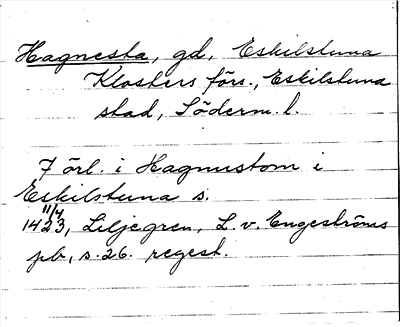 Hagnesta, gd, Eskilstuna
Klosters förs., Eskilstuna
stad, Söderm. l.
7 örl. i Hagnustom i
Eskilstuna s.
1423 11/4, Liljegren, L. v. Engeströms
pb, s. 26. regest.